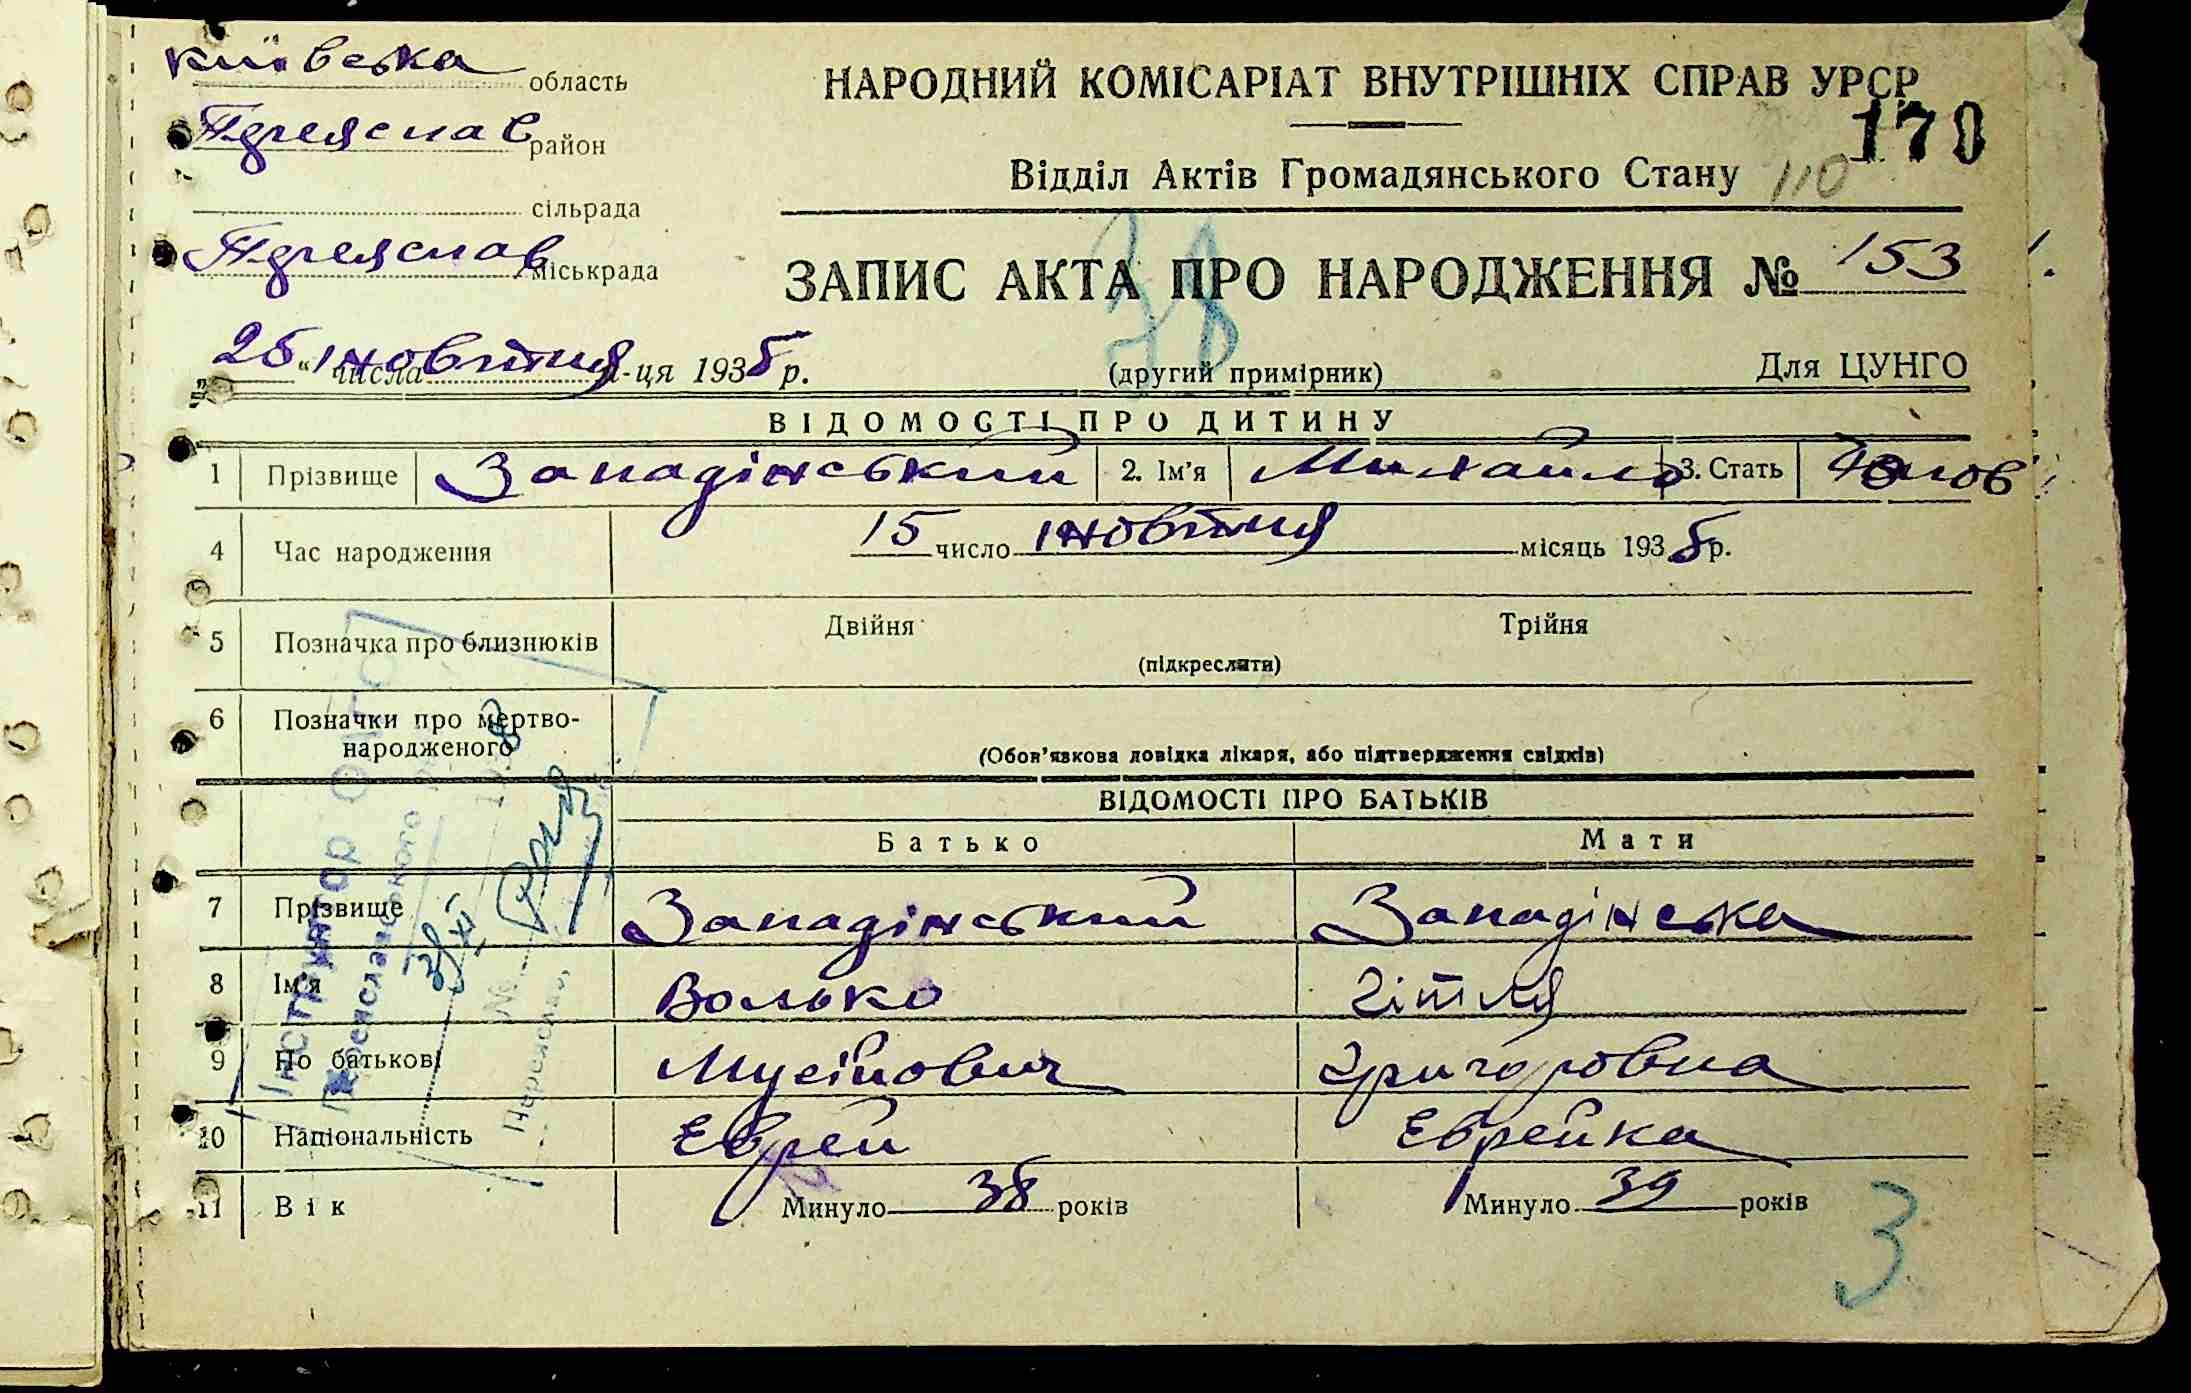 Київська область
Переяслав район
сільрада
Переяслав міськрада
НАРОДНИЙ КОМІСАРІАТ ВНУТРІШНІХ СПРАВ УРСР
170
Відділ Актів Громадянського Стану 110
38
ЗАПИС АКТА ПРО НАРОДЖЕННЯ № 153
„25“ числа жовтня м-ця 1935 р.
(другий примірник)
Для ЦУНГО
ВІДОМОСТІ ПРО ДИТИНУ
1 Прізвище Западінський 2. Ім'я Михайло 3. Стать Чолов
4 Час народження 15 число жовтня місяць 1935 р.
5 Позначка про близнюків Двійня Трійня
(підкреслити)
6 Позначки про мертво-
народженого
(Обов'язкова довідка лікаря, або підтвердження свідків)
ВІДОМОСТІ ПРО БАТЬКІВ
Батько Мати
7 Прізвище Западінський Западінська
8 Ім'я Волько Гітля
9 По батькові Мусійович Григоровна
10 Національність Еврей Еврейка
11 Вік Минуло 38 років Минуло 39 років
3
Інструктор
Переяславського
№
Переяслав,